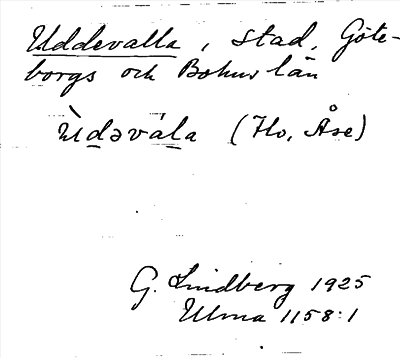 Uddevalla, stad, Göte-
borgs och Bohus län
Ùdəvála (Ho, Åse)
G. Lindberg 1925
Ulma 1158:1